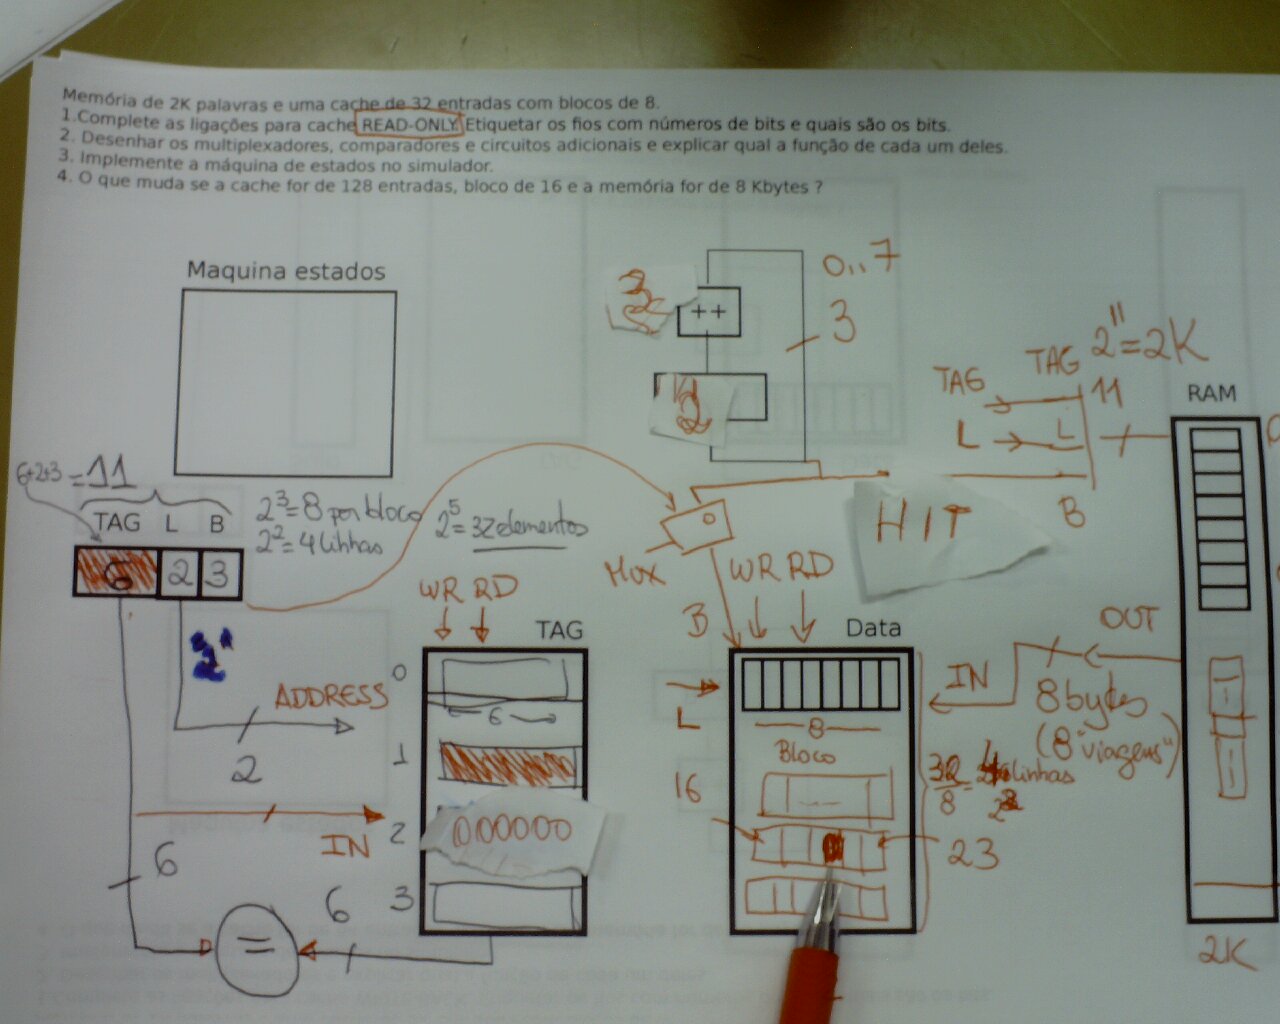 Memória de 2K palavras e uma cache de 32 entradas com blocos de 8.
1.Complete as ligações para cache READ-ONLY. Etiquetar os fios com números de bits e quais são os bits.
2. Desenhar os multiplexadores, comparadores e circuitos adicionais e explicar qual a função de cada um deles.
3. Implemente a máquina de estados no simulador.
4. O que muda se a cache for de 128 entradas, bloco de 16 e a memória for de 8 Kbytes ?
Maquina estados
++
0..7
3
TAG
TAG
2^11=2K
11
L
L
B
RAM
6+2+3 = 11
TAG L B
6 2 3
2^3=8 por bloco
2^2=4 linhas
2^5=32 elementos
HIT
MUX
0
WR RD
TAG
WR RD
B
Data
OUT
IN
8 bytes
(8 "viagens")
ADDRESS
2
0
6
1
L
8
Bloco
32/8 = linhas
16
IN
2
000000
23
6
6
3
=
2K